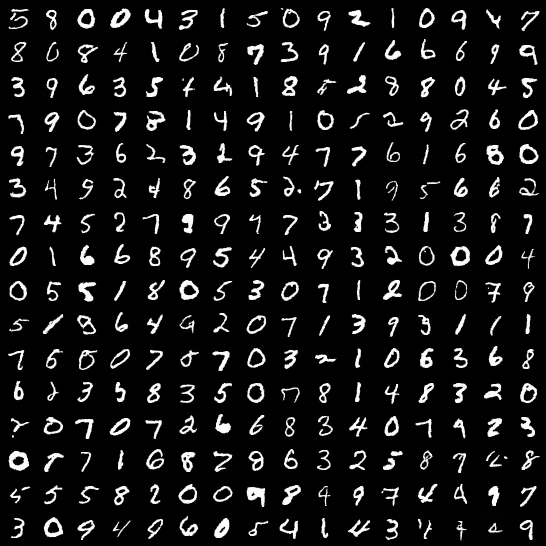 5 8 0 0 4 3 1 5 0 9 2 1 0 9 4 7
8 0 8 4 1 0 8 7 3 9 1 6 6 6 9 9
3 9 6 3 5 4 1 8 2 8 8 0 4 5
7 9 0 7 8 1 4 9 1 0 5 2 9 2 6 0
9 7 3 6 2 3 2 9 4 7 7 6 1 6 8 0
3 4 9 2 4 8 6 5 2 7 1 9 5 6 6 2
7 4 5 2 7 9 9 4 7 3 3 3 1 3 8 7
0 1 6 6 8 9 5 4 4 9 3 2 0 0 0 4
0 5 5 1 8 0 5 3 0 7 1 2 0 0 7 9
5 1 8 6 4 9 2 0 7 1 3 9 3 1 1 1
7 6 0 0 7 8 7 0 3 2 1 0 6 3 6 8
6 2 3 5 8 3 5 0 7 8 1 4 8 3 2 0
7 0 7 0 7 2 6 6 8 3 4 0 7 9 2 3
0 8 7 1 6 8 7 8 6 3 2 5 8 7 2 8
5 5 5 8 2 0 0 9 8 9 9 7 4 9 9 7
3 0 9 4 9 6 0 5 4 1 4 3 4 9